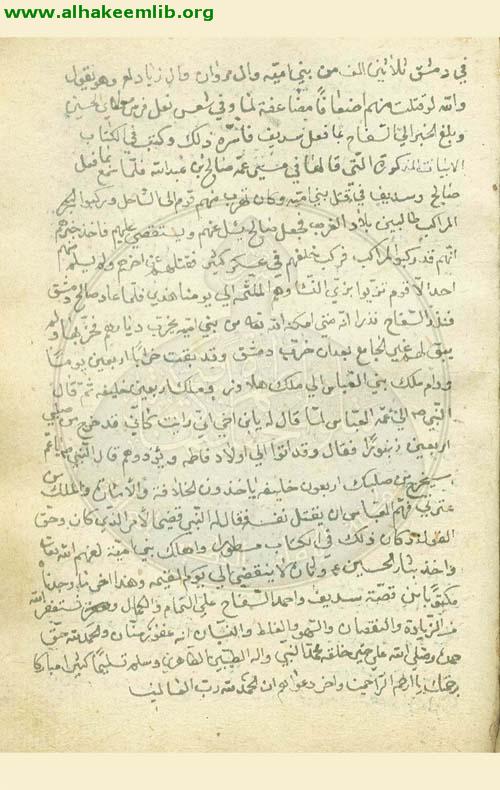 www.alhakeemlib.org
في دمشق ثلاثين الف من بني اميه وال مروان وال زياد وهو يقول
والله لو قتلت منهم اضعافا مضاعفة لما وفي شسع نعل فرس الحسين
وبلغ الخبر الي السفاح بما فعل سديف فاسره ذلك وكتب في الكتاب
الابيات المذكورة التي قالها في عمه صالح بن عبدالله فلما سمع بما فعل
صالح وسديف في قتل بني اميه وكان هرب منهم قوم الى الساحل وركبوا البحر
المراكب طالبين بلاد الغرب فجعل صالح يسال عنهم ويستقصي عليهم فاخذ خبرهم
انهم قد ركبوا المراكب فركب خلفهم في عسكر كثير فقتلهم عن اخرهم ولم يسلم منهم
احد الا قوم تزيوا بزي النسا وهم الملثمه الى يومنا هذا فلما عاد صالح دمشق
فنذر السفاح نذرا انه متى امكنه الله تعه من بني اميه يخرب ديارهم فخربها ولم
يبق لهم غير الجامع بعد ان خرب دمشق وقد بقيت خرابا اربعين يوما
ودام ملك بني العباس الي ملك هلاون وملك اربعين خليفه ثم قال
النبي ص الي عمه العباس لما قال له يابن اخي اني رايت كاني قد خرج من صلبي
اربعين زنبورا فقال وقد اتوا الي اولاد فاطمه ويؤذوهم قال النبي ص يا عم
سيخرج من صلبك اربعون خليفه ياخذون الخلافة والملك من
عترتي فهم العباس ان يقتل نفسه فقال له النبي قضي الامر الذي كان وحق
القول وكان ذلك في الكتاب مسطورا واهلك بني امية لعنهم الله تعا
واخذ بثار الحسين ع وثار لا ينقضي الي يوم القيمه وهذا اخر ما وجدنا
مكتوبا من قصة سديف واحمد السفاح علي التمام والكمال ونستغفر الله
من الزيادة والنقصان والسهو والغلط والنسيان انه غفور منان والحمد لله حق
حمده وصلى الله على خير خلقه محمد النبي واله الطيبين الطاهرين وسلم تسليما كثيرا مباركا
برحمتك يا ارحم الراحمين واخر دعوانا ان الحمد لله رب العالمين